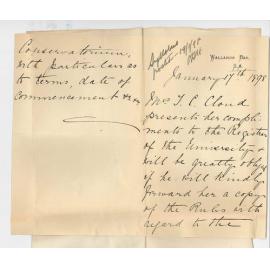 Wallaroo Bay,
S.A.
Syllabus
posted 19/1/98
January 17th 1898
Mrs T. C. Cloud
presents her compli-
ments to the Registrar
of the University &
will be greatly obliged
if he will kindly
forward her a copy
of the Rules with
regard to the
Conservatorium,
with particulars as
to terms, date of
commencement &c &c